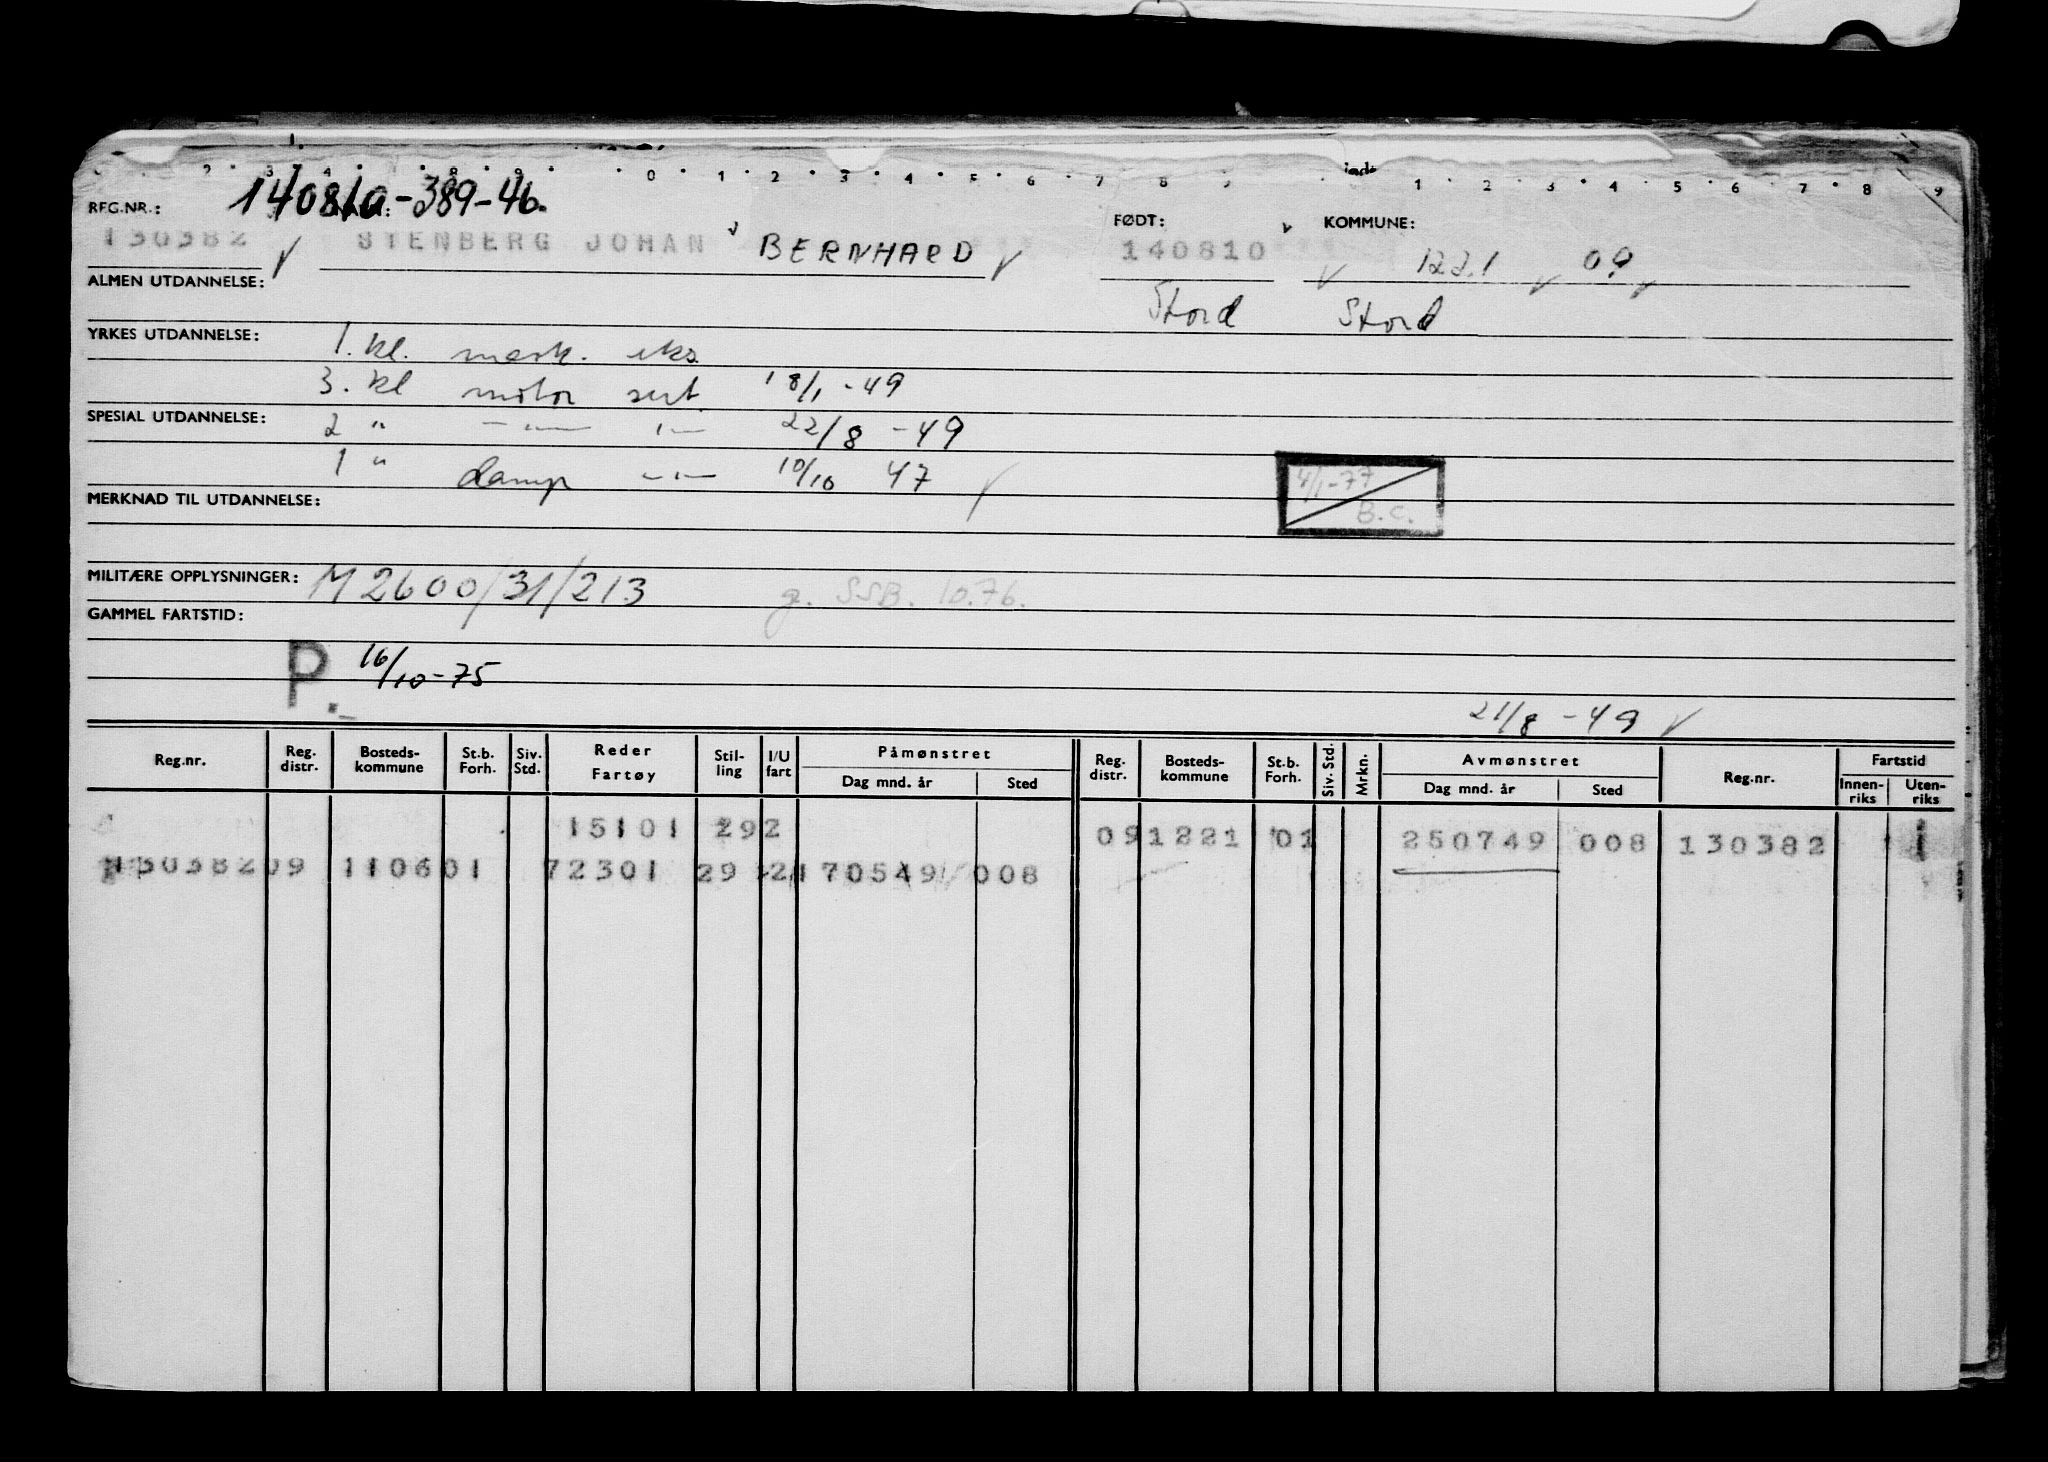 140810-389-46.
REG.NR.: FØDT: KOMMUNE:
130382 STENBERG JOHAN BERNHARD 140810 1221 09
ALMEN UTDANNELSE: Stord Stord
YRKES UTDANNELSE: 1. kl. mask. eks.
3. kl motor sert. 18/1-49
SPESIAL UTDANNELSE: 2 " -"- "- 22/8-49
1 " damp -"- 10/10 47
4/1-77
B.C.
MERKNAD TIL UTDANNELSE:
MILITÆRE OPPLYSNINGER: M 2600/31/213 g. SSB. 10.76.
GAMMEL FARTSTID:
P. 16/10-75
21/8-49
Reg.nr. Reg. distr. Bosteds-kommune St.b. Forh. Siv. Std. Reder Fartøy Stil-ling I/U fart Påmønstret Dag mnd. år Sted Reg. distr. Bosteds-kommune St.b. Forh. Siv. Std. Mrkn. Avmønstret Dag mnd. år Sted Reg.nr. Fartstid Innen-riks Uten-riks
15101 292 09 1221 01 250749 008 130382 1
130382 09 1106 01 72301 29 2 170549 008